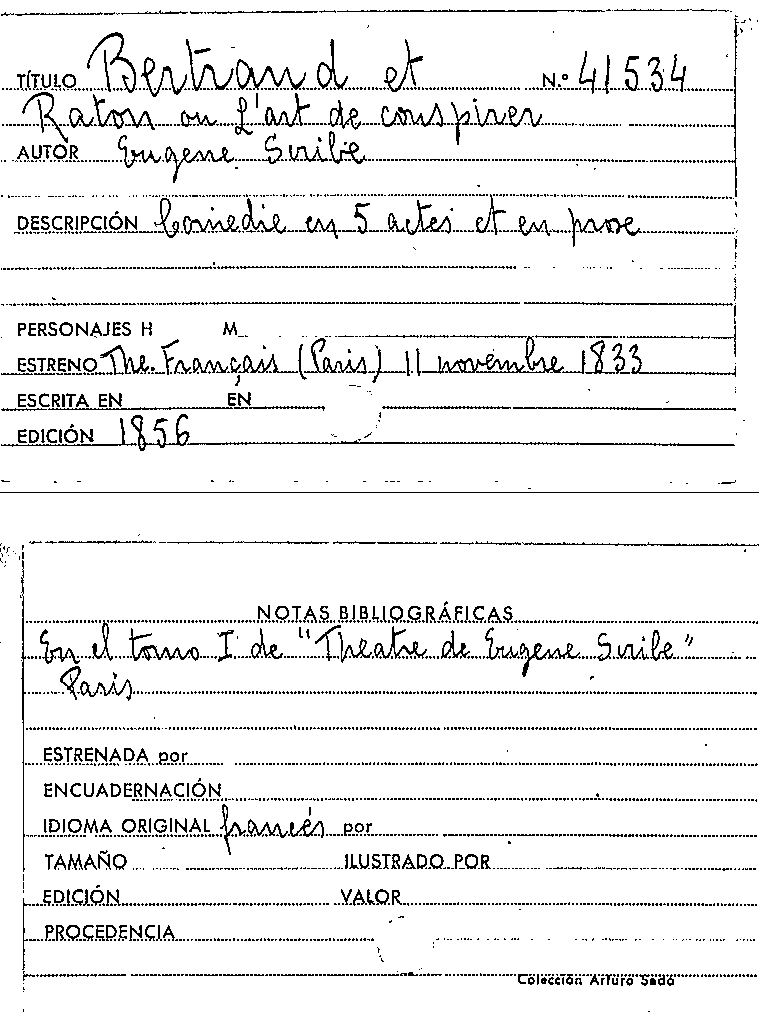 TÍTULO Bertrand et N.º 41534
Raton ou L'art de conspirer
AUTOR Eugene Scribe
DESCRIPCIÓN Comedie en 5 actes et en prose
PERSONAJES H M
ESTRENO The. Français (Paris) 11 novembre 1833
ESCRITA EN EN
EDICIÓN 1856
NOTAS BIBLIOGRÁFICAS
En el tomo I de "Theatre de Eugene Scribe"
Paris
ESTRENADA por
ENCUADERNACIÓN
IDIOMA ORIGINAL francés por
TAMAÑO ILUSTRADO POR
EDICIÓN VALOR
PROCEDENCIA
Colección Arturo Sedó